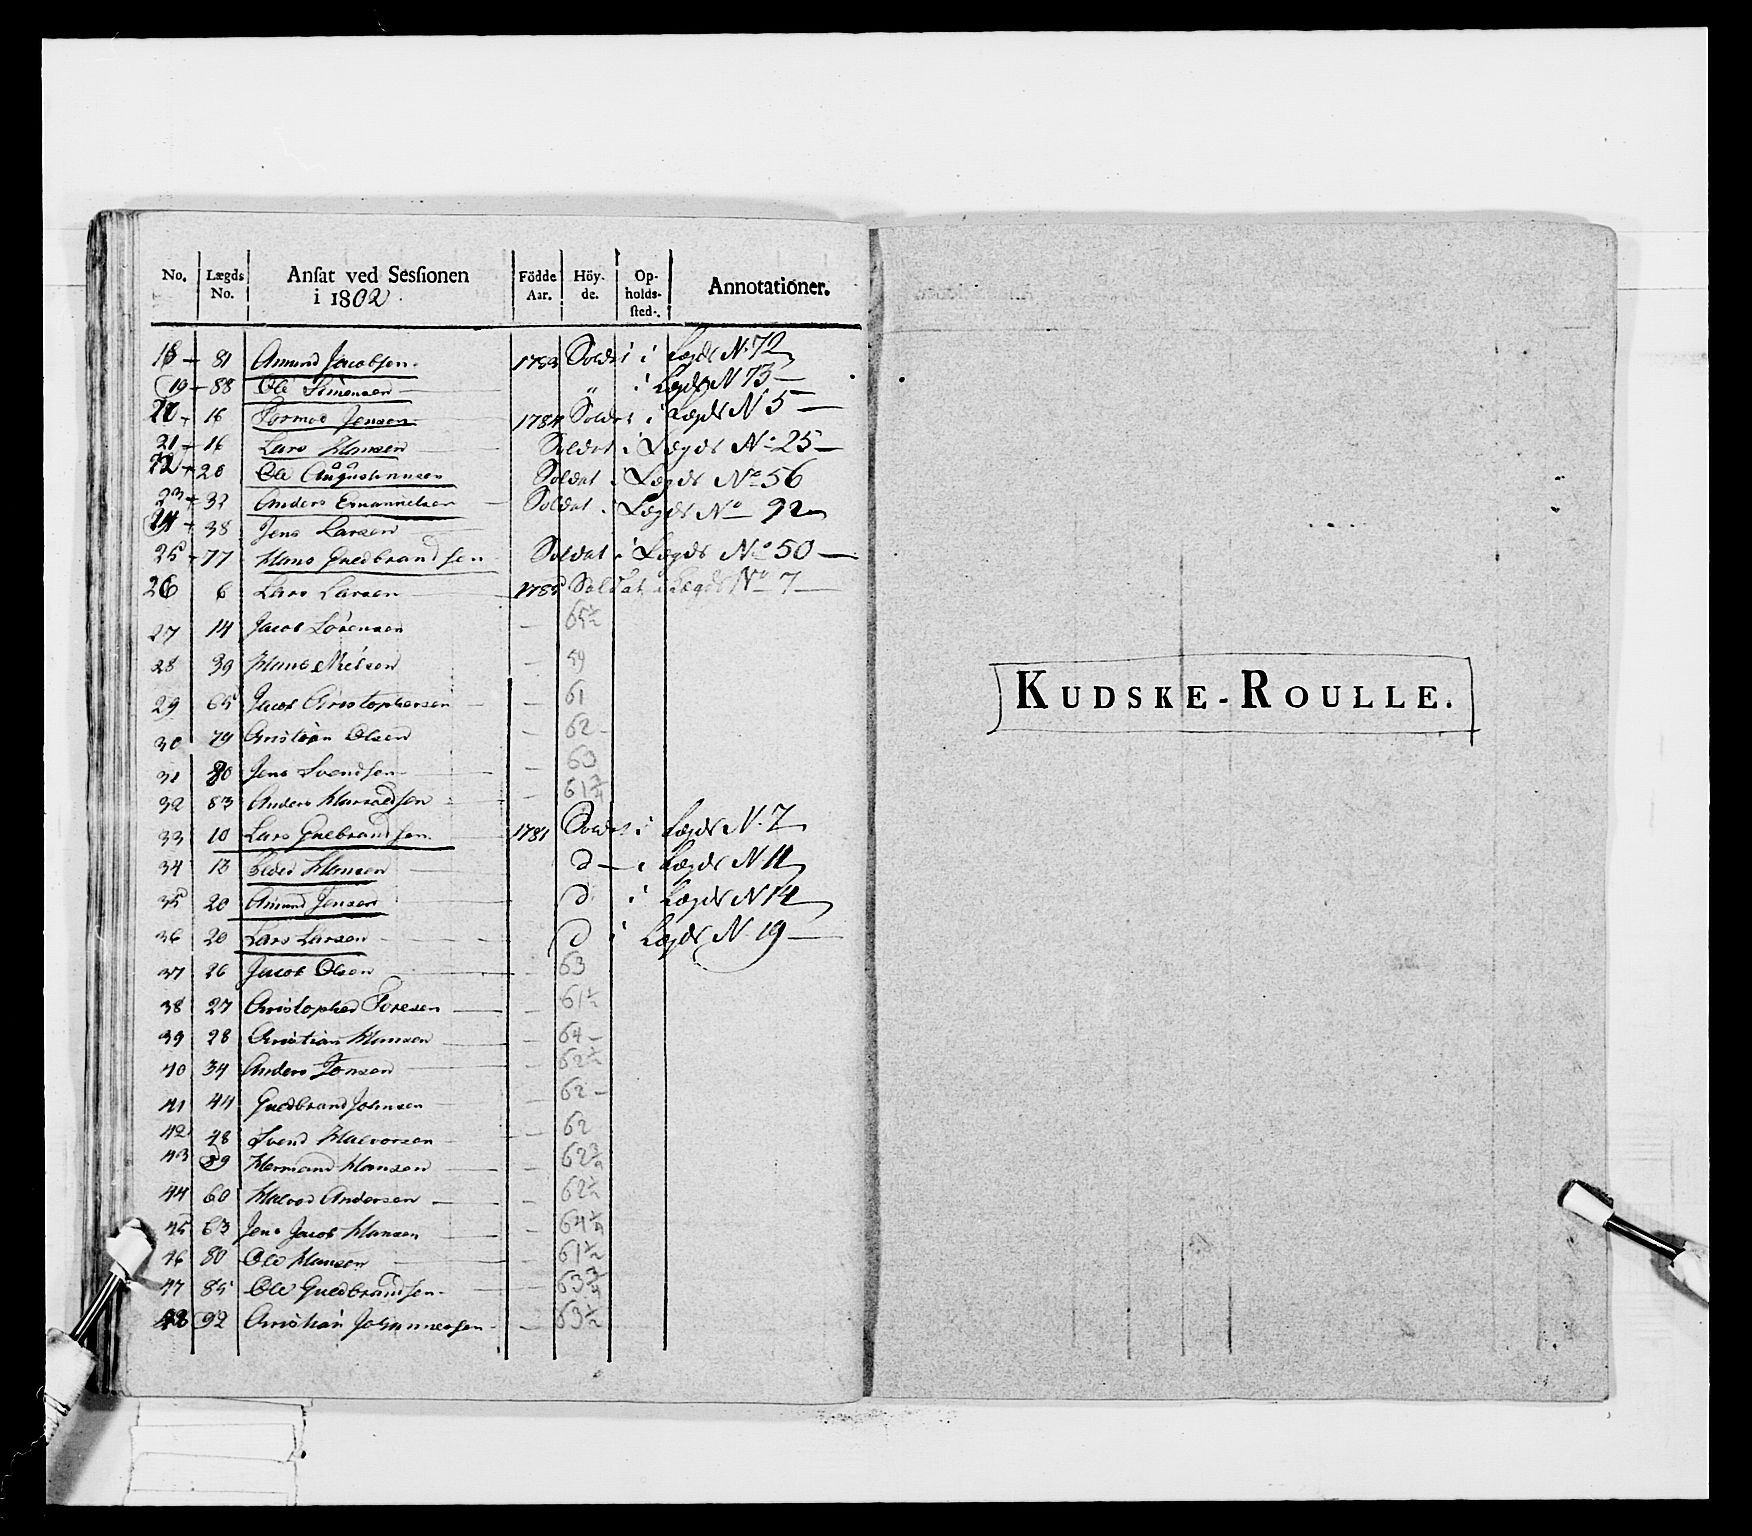 No. Lægds No. Ansat ved Sessionen i 1802. Födde Aar. Höyde. Opholdssted. Annotationer.
18 81 Amund Jacobsen 1783 Soldat i Lægds N. 72
19 88 Ole Simensen " i Lægds N 73
20 16 Tormod Jensen 1784 Soldat i Lægds N 5
21 16 Lars Hansen Soldat i Lægds No 25
22 20 Ole Augustinusen Soldat i Lægds No 56
23 32 Anders Emanuelsen Soldat i Lægds No 92
24 38 Jens Larsen
25 77 Hans Gudbrandsen Soldat i Lægds No 50
26 6 Lars Larsen 1785 Soldat i Lægds No 7
27 14 Jacob Sörensen — 65½
28 39 Hans Nielsen — 59
29 65 Jacob Christophersen — 61
30 79 Christian Olsen — 62
31 80 Jens Svendsen — 63
32 83 Anders Haraldsen — 61¾
33 10 Lars Gulbrandsen 1781 Soldat i Lægds N. 7
34 13 Peder Hansen d — i Lægds N 11
35 20 Amund Jensen d i Lægds N 14
36 20 Lars Larsen d i Lægds N. 19
37 26 Jacob Olsen — 63
38 27 Christopher Toresen — 61½
39 28 Christian Hansen — 64
40 34 Anders Jonsen — 62½
41 44 Gudbrand Johnsen — 62
42 48 Svend Halvorsen — 62
43 59 Hermand Hansen — 62¾
44 60 Halvor Andersen — 62½
45 63 Jens Jacob Hansen — 64¼
46 80 Ole Hansen — 61½
47 85 Ole Guldbrandsen — 63¾
48 92 Christian Johannessen — 63½
KUDSKE-ROULLE.